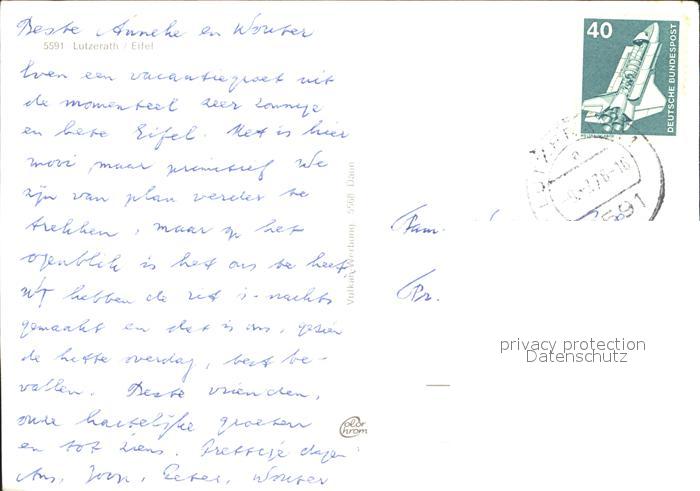 Beste Anneke en Wouter
5591 Lutzerath / Eifel
Even een vacantiegroet uit
de momenteel zeer zonnige
en hete Eifel. Het is hier
mooi, maar primitief. We
zijn van plan verder te
trekken, maar op het
ogenblik is het ons te heet,
wij hebben de reis 's-nachts
gemaakt en dat is ons, gezien
de hitte overdag, best be-
vallen. Beste vrienden,
onze hartelijke groeten
en tot ziens. Prettige dagen
Ans, Joop, Peter, Wouter
Vulkan Werbung 5568 Daun
color
chrom
40
DEUTSCHE BUNDESPOST
5591
Fam.
Pr.
privacy protection
Datenschutz